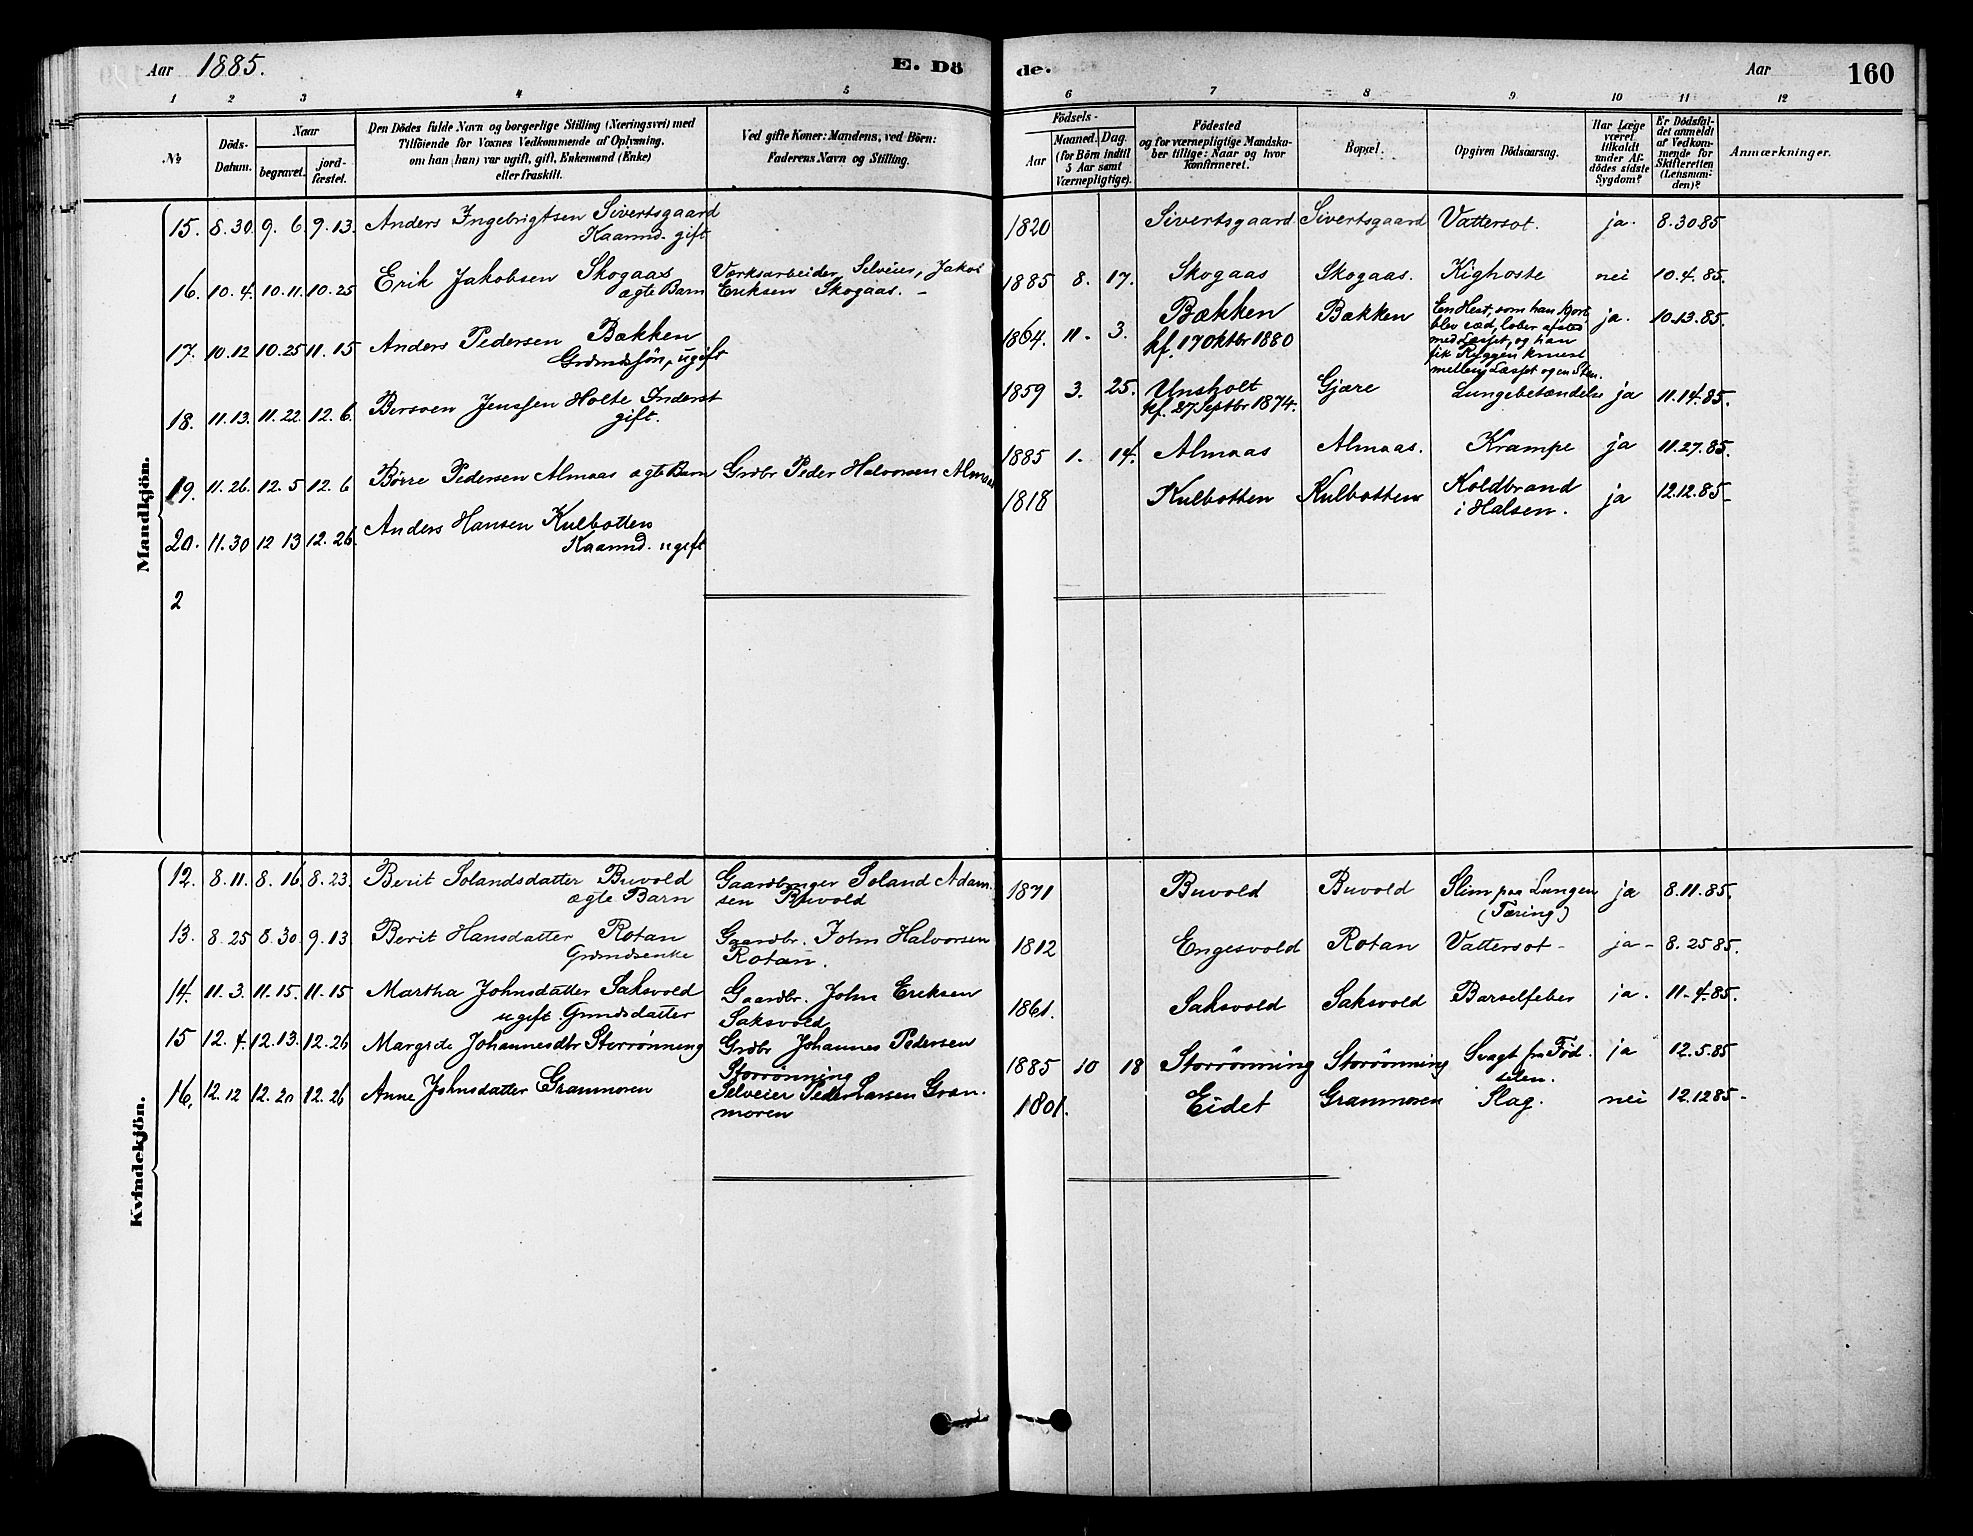 Aar 1885.
E. Dö
de.
Aar
160
1 2 3 4 5 6 7 8 9 10 11 12
No
Döds-
Datum.
Naar
begravet.
jord-
fæstet.
Den Dödes fulde Navn og borgerlige Stilling (Næringsvei) med
Tilföiende for Voxnes Vedkommende af Oplysning,
om han (hun) var ugift, gift, Enkemand (Enke)
eller fraskilt.
Ved gifte Koner: Mandens, ved Börn:
Faderens Navn og Stilling.
Födsels-
Aar
Maaned. Dag.
(for Börn indtil
5 Aar samt
Værnepligtige).
Födested
og for værnepligtige Mandska-
ber tillige: Naar og hvor
Konfirmeret.
Bopæl.
Opgiven Dödsaarsag.
Har Læge
været
tilkaldt
under Af-
dödes sidste
Sygdom?
Er Dödsfal-
det anmeldt
af Vedkom-
mende for
Skifteretten
(Lensman-
den)?
Anmærkninger.
Mandkjön.
15. 8.30. 9. 6. 9.13. Anders Ingebrigtsen Sivertsgaard
Kaarmd. gift
1820 Sivertsgaard Sivertsgaard Vattersot. ja. 8.30 85
16. 10.4. 10.11. 10.25 Erik Jakobsen Skogaas
ægte Barn
Værksarbeider, Selveier, Jakob
Eriksen Skogaas. -
1885 8. 17. Skogaas Skogaas. Kighoste nei 10.4.85.
17. 10.12 10.25 11.15 Anders Pedersen Bækken
Grdmdssön, ugift
1864. 11. 3. Bækken
kf. 17 Oktbr 1880
Bækken
En Hest, som han kjørte,
blev ræd, løber afsted
med Læsset, og han
fik Ryggen knust
mellem Læsset og en Sten.
ja. 10.13.85.
18. 11.13. 11.22. 12.6. Bersven Jenssen Holte Inderst
gift.
1859 3. 25. Unsholt
kf. 27 Septbr 1874.
Gjære Lungebetændelse ja 11.14.85.
19. 11.26. 12.5 12.6 Børre Pedersen Almaas ægte Barn Grdbr Peder Halvorsen Almaas
1885 1. 14. Almaas Almaas. Krampe ja 11.27.85.
20. 11.30 12 13 12.26. Anders Hansen Kulbotten
Kaarmd. ugift
1818 Kulbotten Kulbotten Koldbrand
i Halsen.
ja 12.12.85-
2
Kvindekjön.
12. 8.11. 8.16. 8.23. Berit Solandsdatter Buvold
ægte Barn
Gaardbruger Soland Adam-
sen Buvold
1871 Buvold Buvold Slim paa Lungen
(Tæring)
ja 8.11.85.
13. 8.25 8.30. 9.13. Berit Hansdatter Rotan
Grdmdsenke
Gaardbr. John Halvorsen
Rotan.
1812 Engesvold Rotan Vattersot- ja- 8.25 85.
14. 11.3. 11.15. 11.15 Martha Johnsdatter Saksvold
ugift Grmdsdatter
Gaardbr. John Eriksen
Saksvold
1861. Saksvold Saksvold Barselfeber ja. 11-4.85.
15 12.4. 12.13. 12.26 Margide Johannesdtr Storrønning Grdbr Johannes Pedersen
Storrønning
1885 10 18 Storrønning Storrønning Svagt fra Föd-
selen.
ja 12.5.85
16. 12.12 12.20 12.26 Anne Johnsdatter Granmoren Selveier Peder Larsen Gran-
moren
1801. Eidet Granmoren Slag. nei 12.12 85-